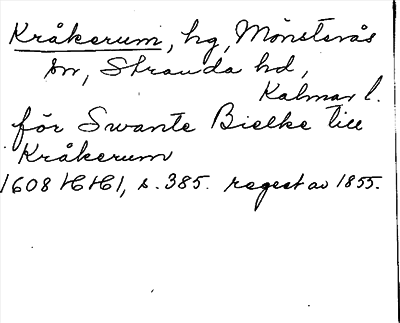 Kråkerum, hg, Mönsterås
sn, Stranda hd,
Kalmar l.
för Swante Bielke till
Kråkerum
1608 HH1, s. 385. regest av 1855.